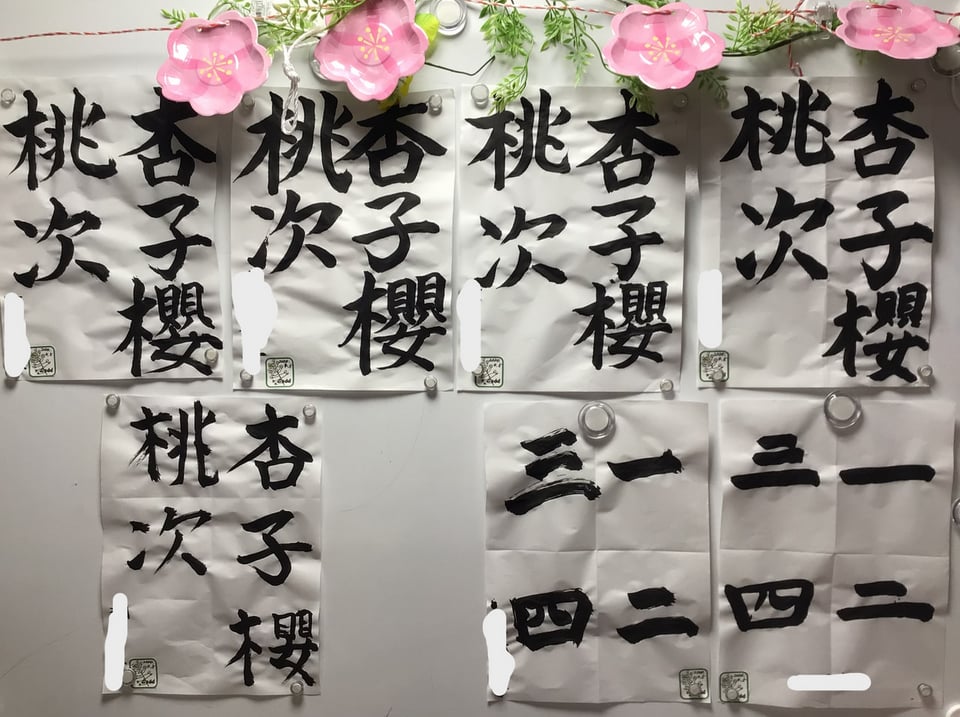 杏子櫻
桃次
杏子櫻
桃次
杏子櫻
桃次
杏子櫻
桃次
杏子櫻
桃次
一二
三四
一二
三四